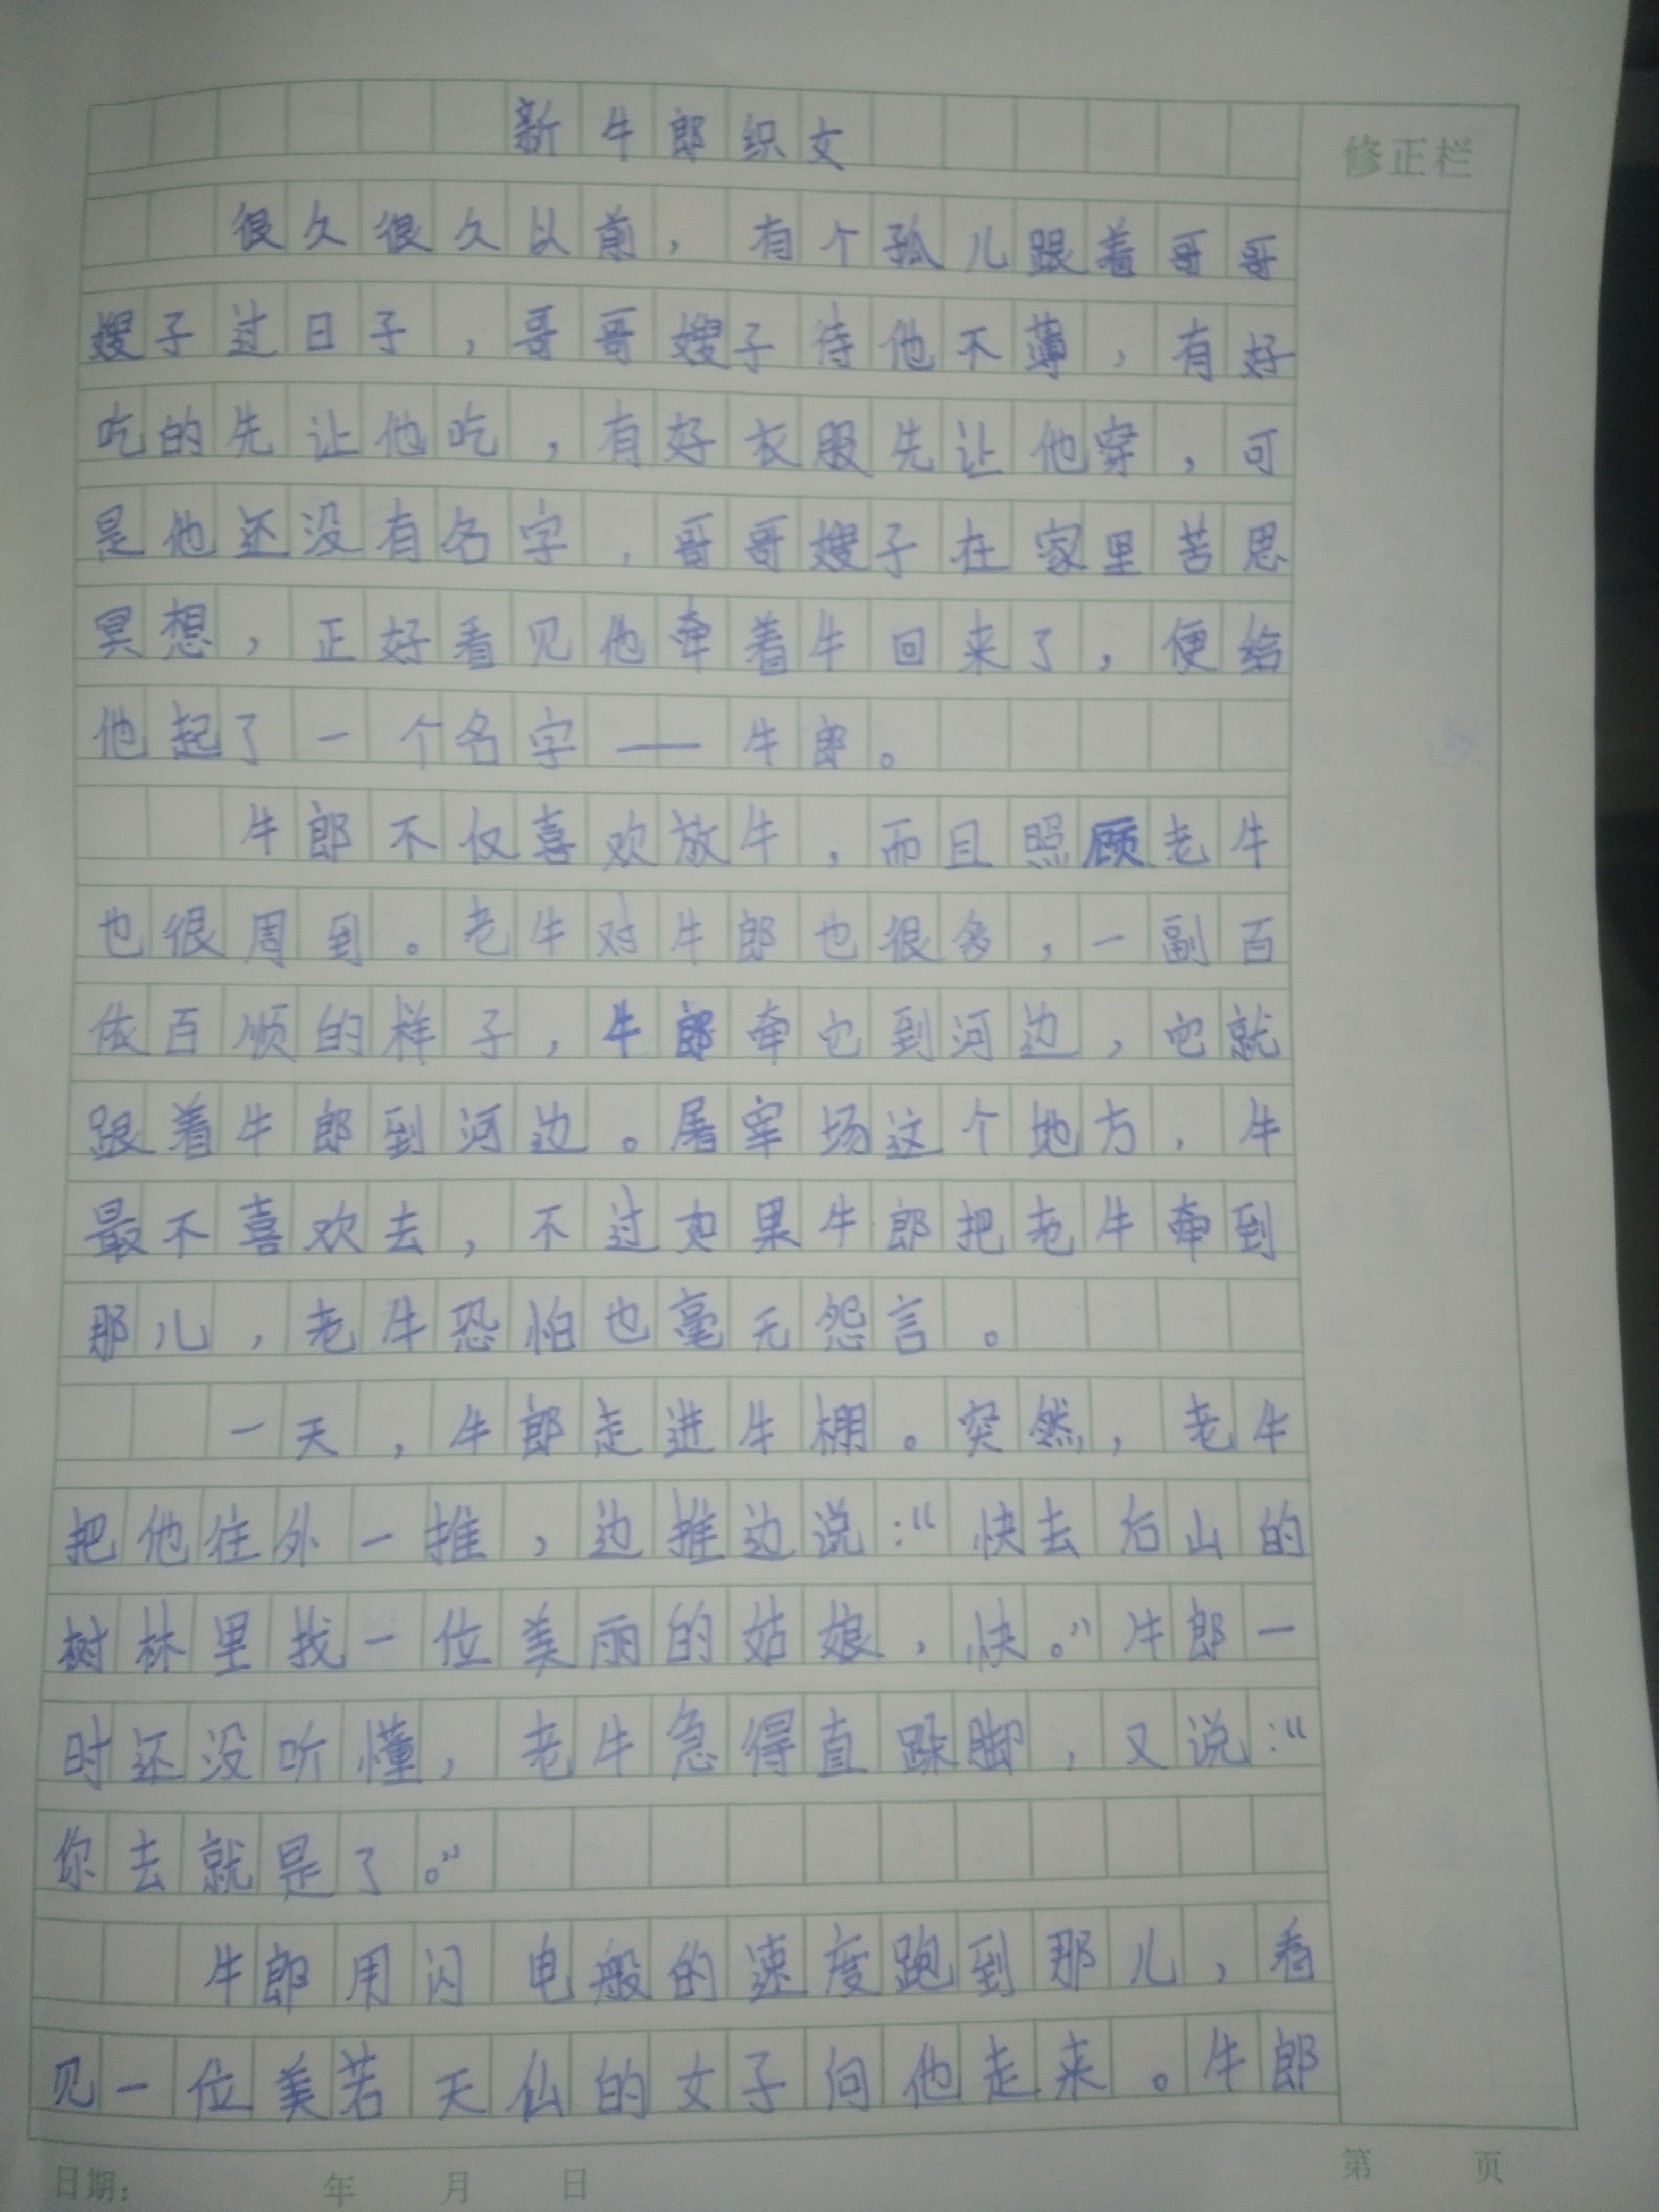 新牛郎织女
修正栏
很久很久以前，有个孤儿跟着哥哥
嫂子过日子，哥哥嫂子待他不薄，有好
吃的先让他吃，有好衣服先让他穿，可
是他还没有名字，哥哥嫂子在家里苦思
冥想，正好看见他牵着牛回来了，便给
他起了一个名字——牛郎。
牛郎不仅喜欢放牛，而且照顾老牛
也很周到。老牛对牛郎也很多，一副百
依百顺的样子，牛郎牵它到河边，它就
跟着牛郎到河边。屠宰场这个地方，牛
最不喜欢去，不过如果牛郎把老牛牵到
那儿，老牛恐怕也毫无怨言。
一天，牛郎走进牛棚。突然，老牛
把他往外一推，边推边说：“快去后山的
树林里找一位美丽的姑娘，快。”牛郎一
时还没听懂，老牛急得直跺脚，又说：“
你去就是了。”
牛郎用闪电般的速度跑到那儿，看
见一位美若天仙的女子向他走来。牛郎
日期： 年 月 日
第 页